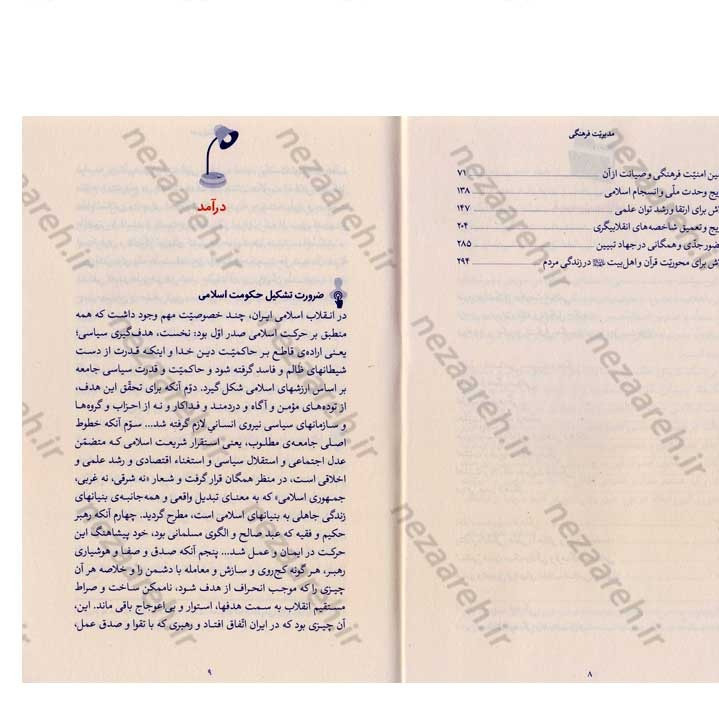 مدیریّت فرهنگی
امنیّت فرهنگی و صیانت از آن ۷۱
وحدت ملّی و انسجام اسلامی ۱۳۸
برای ارتقا و رشد توان علمی ۱۴۷
و تعمیق شاخصه‌های انقلابیگری ۲۰۴
جدّی و همگانی در جهاد تبیین ۲۸۵
برای محوریّت قرآن و اهل‌بیت در زندگی مردم ۲۹۴
۸
درآمد
ضرورت تشکیل حکومت اسلامی
در انقلاب اسلامی ایران، چند خصوصیّت مهم وجود داشت که همه
منطبق بر حرکت اسلامی صدر اوّل بود: نخست، هدف‌گیری سیاسی؛
یعنی اراده‌ی قاطع بر حاکمیّت دین خدا و اینکه قدرت از دست
شیطانهای ظالم و فاسد گرفته شود و حاکمیّت و قدرت سیاسی جامعه
بر اساس ارزشهای اسلامی شکل گیرد. دوّم آنکه برای تحقّق این هدف،
از توده‌های مؤمن و آگاه و دردمند و فداکار و نه از احزاب و گروه‌ها
و سازمانهای سیاسی نیروی انسانی لازم گرفته شد... سوّم آنکه خطوط
اصلی جامعه‌ی مطلوب، یعنی استقرار شریعت اسلامی که متضمّن
عدل اجتماعی و استقلال سیاسی و استغناء اقتصادی و رشد علمی و
اخلاقی است، در منظر همگان قرار گرفت و شعار «نه شرقی، نه غربی،
جمهوری اسلامی» که به معنای تبدیل واقعی و همه‌جانبه‌ی بنیانهای
زندگی جاهلی به بنیانهای اسلامی است، مطرح گردید. چهارم آنکه رهبر
حکیم و فقیه که عبد صالح و الگوی مسلمانی بود، خود پیشاهنگ این
حرکت در ایمان و عمل شد... پنجم آنکه صدق و صفا و هوشیاری
رهبر، هر گونه کج‌روی و سازش و معامله با دشمن را و خلاصه هر آن
چیزی را که موجب انحراف از هدف شود، ناممکن ساخت و صراط
مستقیم انقلاب به سمت هدفها، استوار و بی‌اعوجاج باقی ماند. این،
آن چیزی بود که در ایران اتّفاق افتاد و رهبری که با تقوا و صدق عمل،
۹
nezaareh.ir
nezaareh.ir
nezaareh.ir
nezaareh.ir
nezaareh.ir
nezaareh.ir
nezaareh.ir
nezaareh.ir